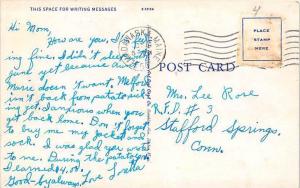 THIS SPACE FOR WRITING MESSAGES
Hi Mom,
How are you, I feel-
ing fine. I didn't sleep
yet because Aunt
Marie doesn't want. Melford
isn't back from potato pick-
ing yet. I anxious when you
get back home. Don't forget
to buy me my jacket and
sock. I was glad you went
to me. During the potato
I earned 4.00.
Good-by always, Love
MADAWASKA MAINE
POST CARD
PLACE
STAMP
HERE
4
Mrs. Lee Rose
R.F.D. #3
Stafford Springs,
Conn.